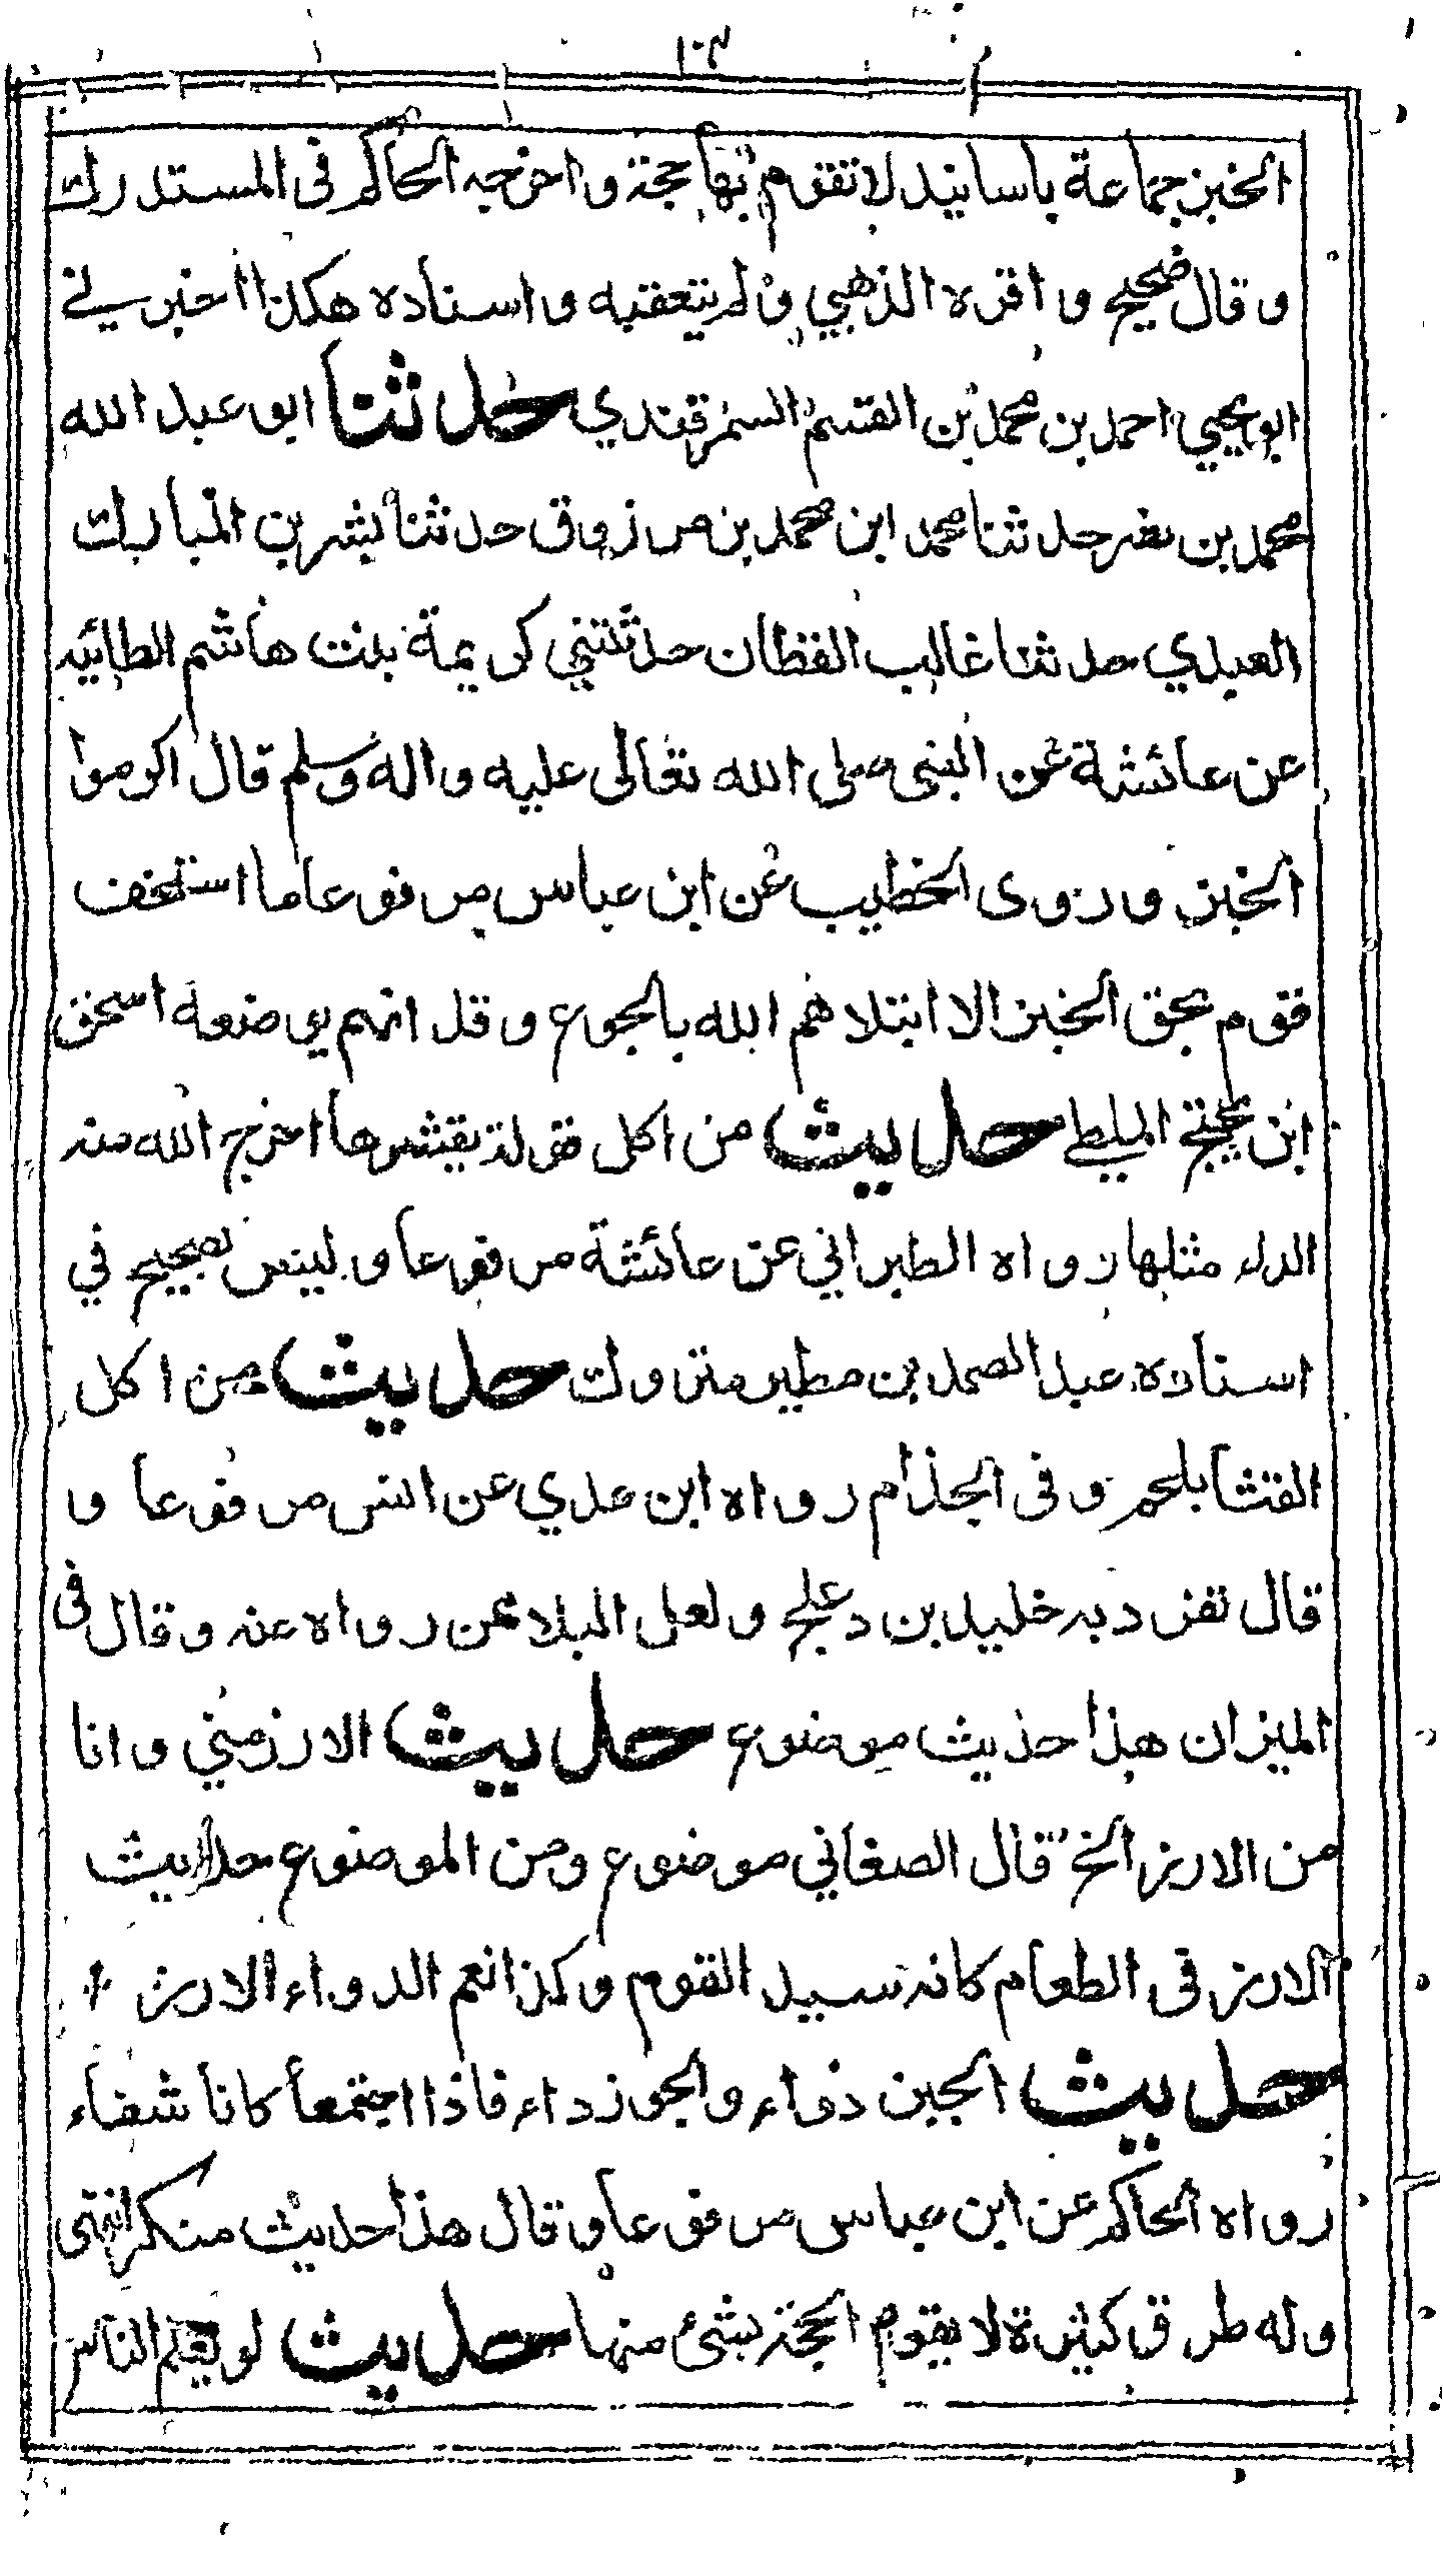 ١٠٣
الخبز جماعة باسانيد لا تقوم بها حجة واخرجه الحاكم فى المستدرك
وقال صحيح واقره الذهبي ولم يتعقبه واسناده هكذا اخبرني
ابو يحيى احمد بن محمد بن القسم السمرقندي حدثنا ابو عبد الله
محمد بن نصر حدثنا محمد ابن محمد بن مرزوق حدثنا بشر بن المبارك
العبدي حدثنا غالب القطان حدثتني كريمة بنت هاشم الطائيه
عن عائشة عن النبى صلى الله تعالى عليه واله وسلم قال اكرموا
الخبز وروى الخطيب عن ابن عباس مرفوعا ما استخف
قوم بحق الخبز الا ابتلاهم الله بالجوع وقد اتهم بوضعه اسحق
ابن نجيح الملطي حديث من اكل فولة بقشرها اخرج الله منه
الداء مثلها رواه الطبراني عن عائشة مرفوعا وليس بصحيح في
اسناده عبد الصمد بن مطير متروك حديث من اكل
القثا بلحم وقى الجذام رواه ابن عدي عن انس مرفوعا و
قال تفرد به خليد بن دعلج ولعل البلاء ممن رواه عنه وقال فى
الميزان هذا حديث موضوع حديث الارز مني وانا
من الارز الخ قال الصغاني موضوع ومن الموضوع حديث
الارز فى الطعام كانه سيد القوم وكذا نعم الدواء الارز
حديث الجبن دواء والجوز داء فاذا اجتمعا كانا شفاء
رواه الحاكم عن ابن عباس مرفوعا وقال هذا حديث منكر انتهى
وله طرق كثيرة لا يقوم الحجة بشئ منها حديث لو يعلم الناس